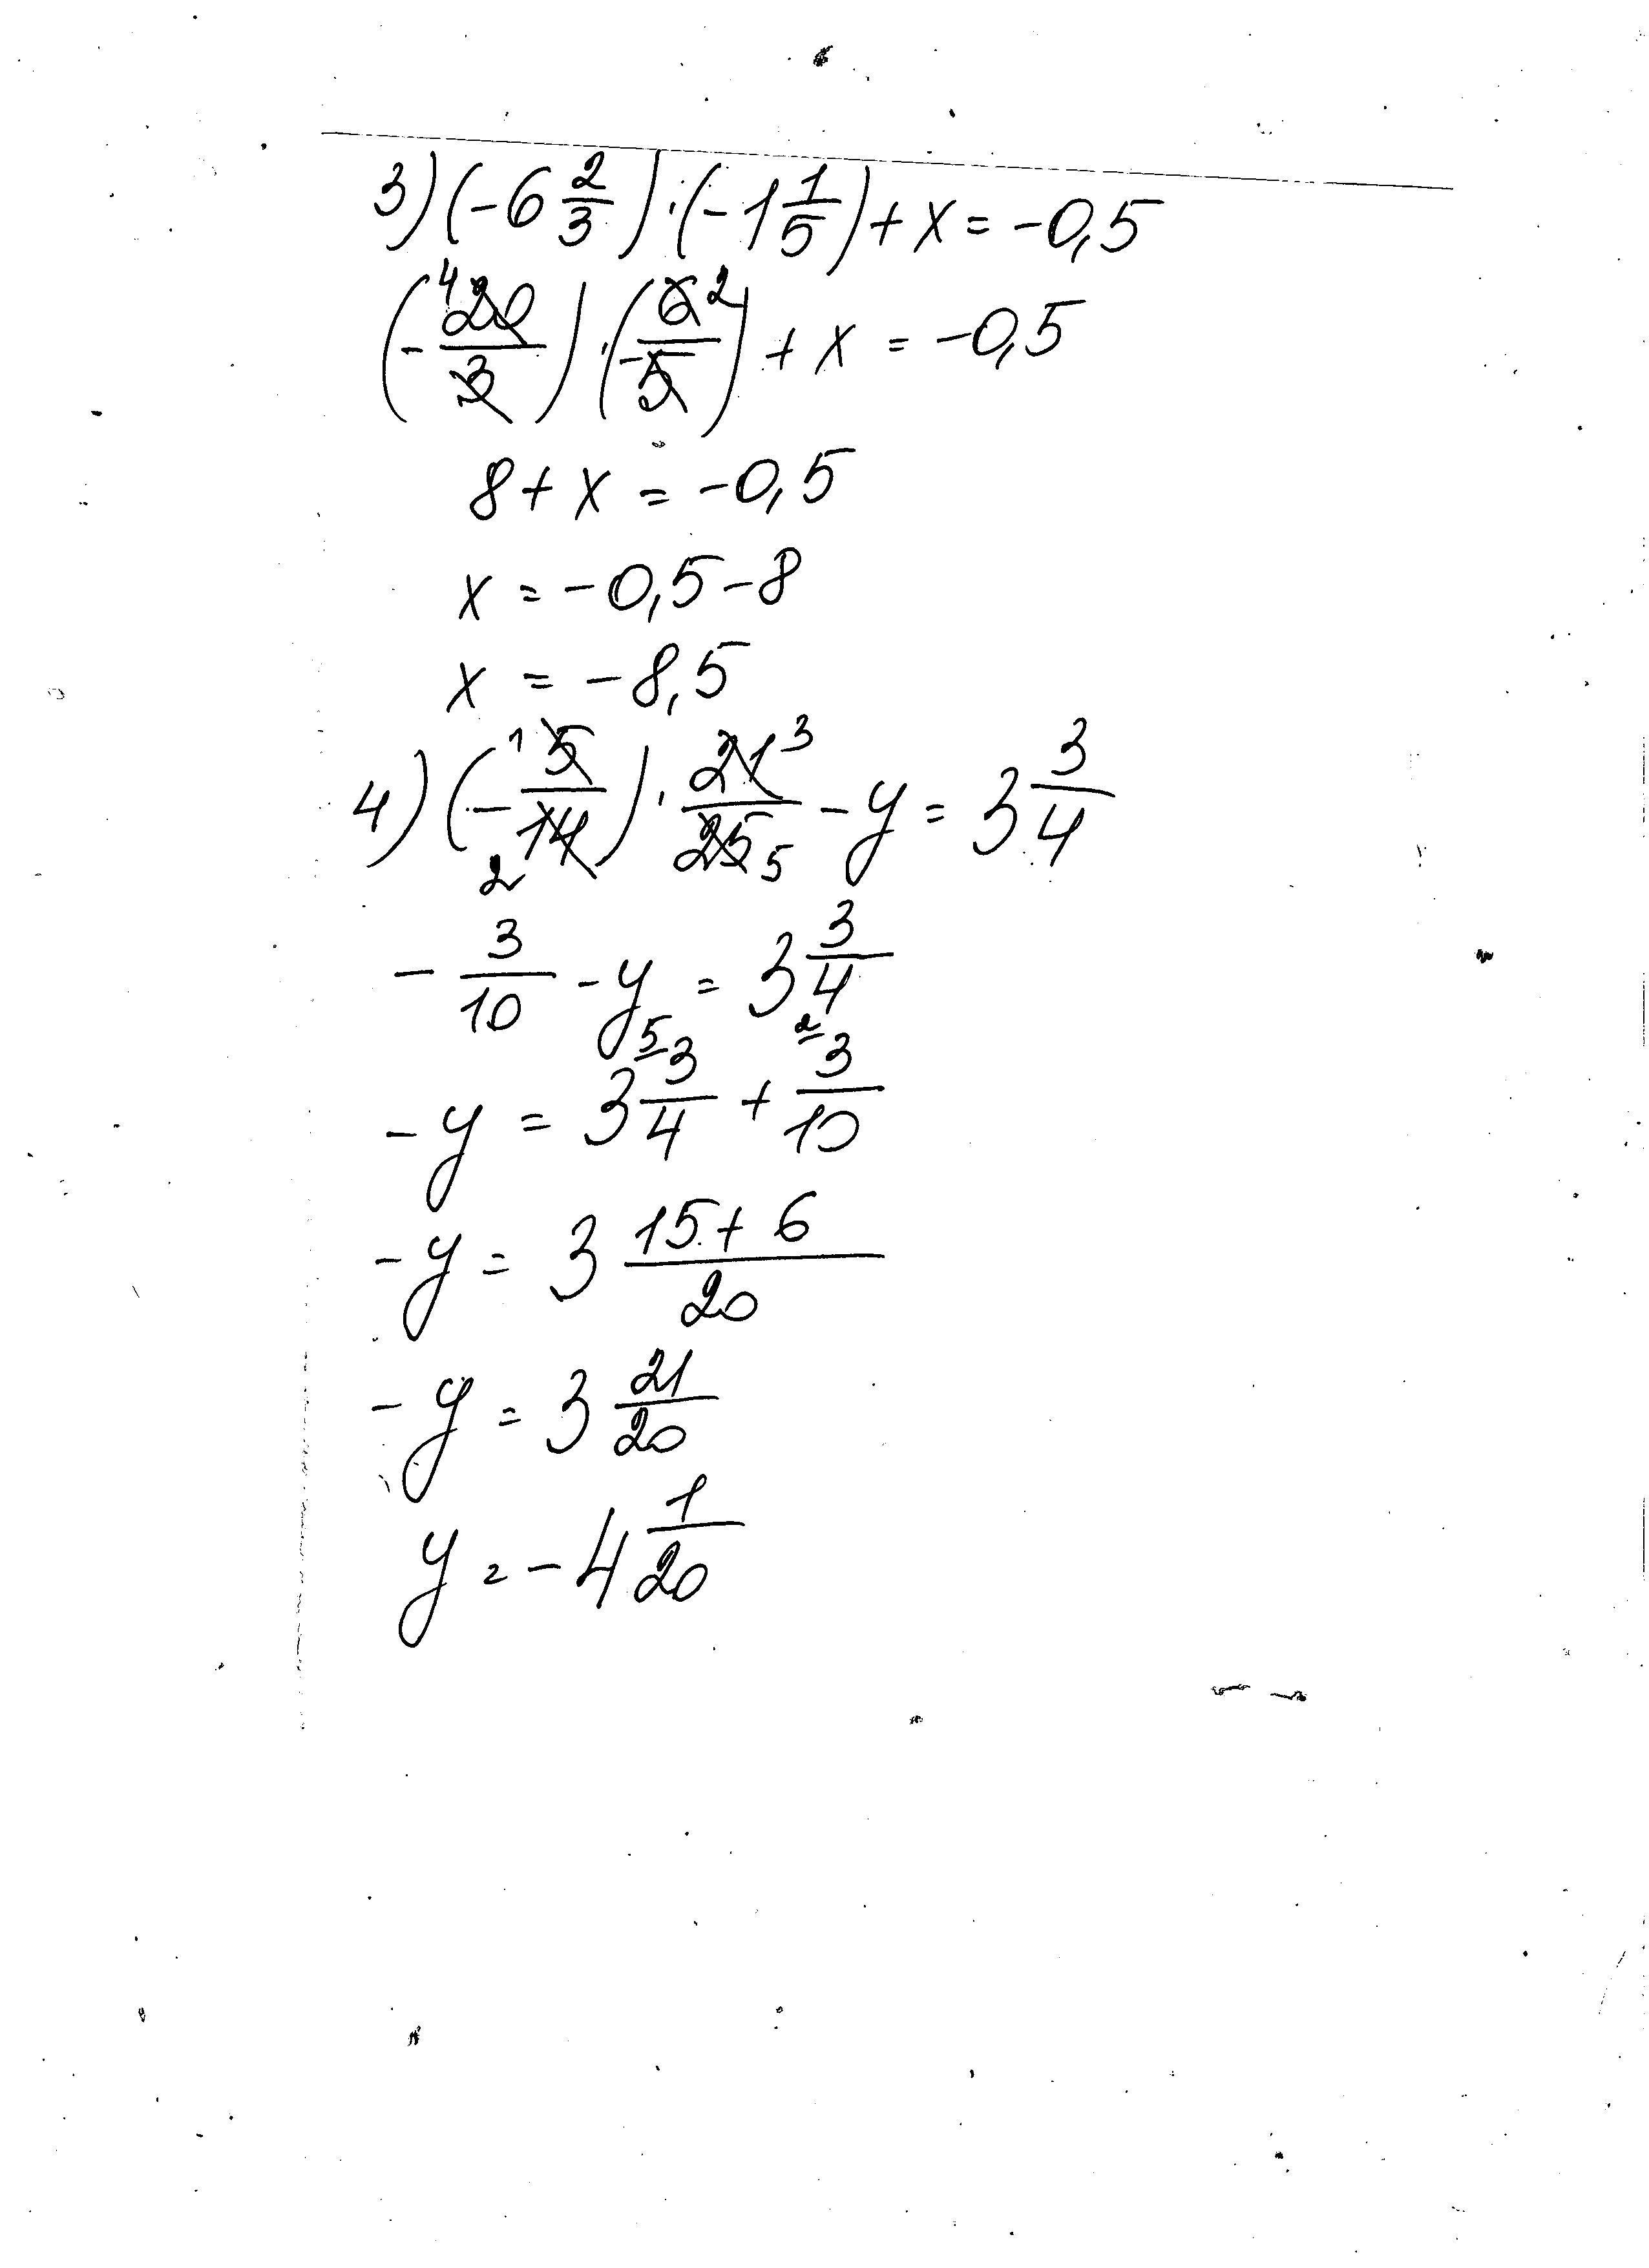 3) (-6 2/3) · (-1 1/5) + x = -0,5
(- 4 20/3) · (- 6/5 2) + x = -0,5
8 + x = -0,5
x = -0,5 - 8
x = -8,5
4) (- 1 5/14 2) · 21/25 3 5 - y = 3 3/4
- 3/10 - y = 3 3/4
-y = 3 5 3/4 + 2 3/10
-y = 3 (15 + 6)/20
-y = 3 21/20
y = -4 1/20